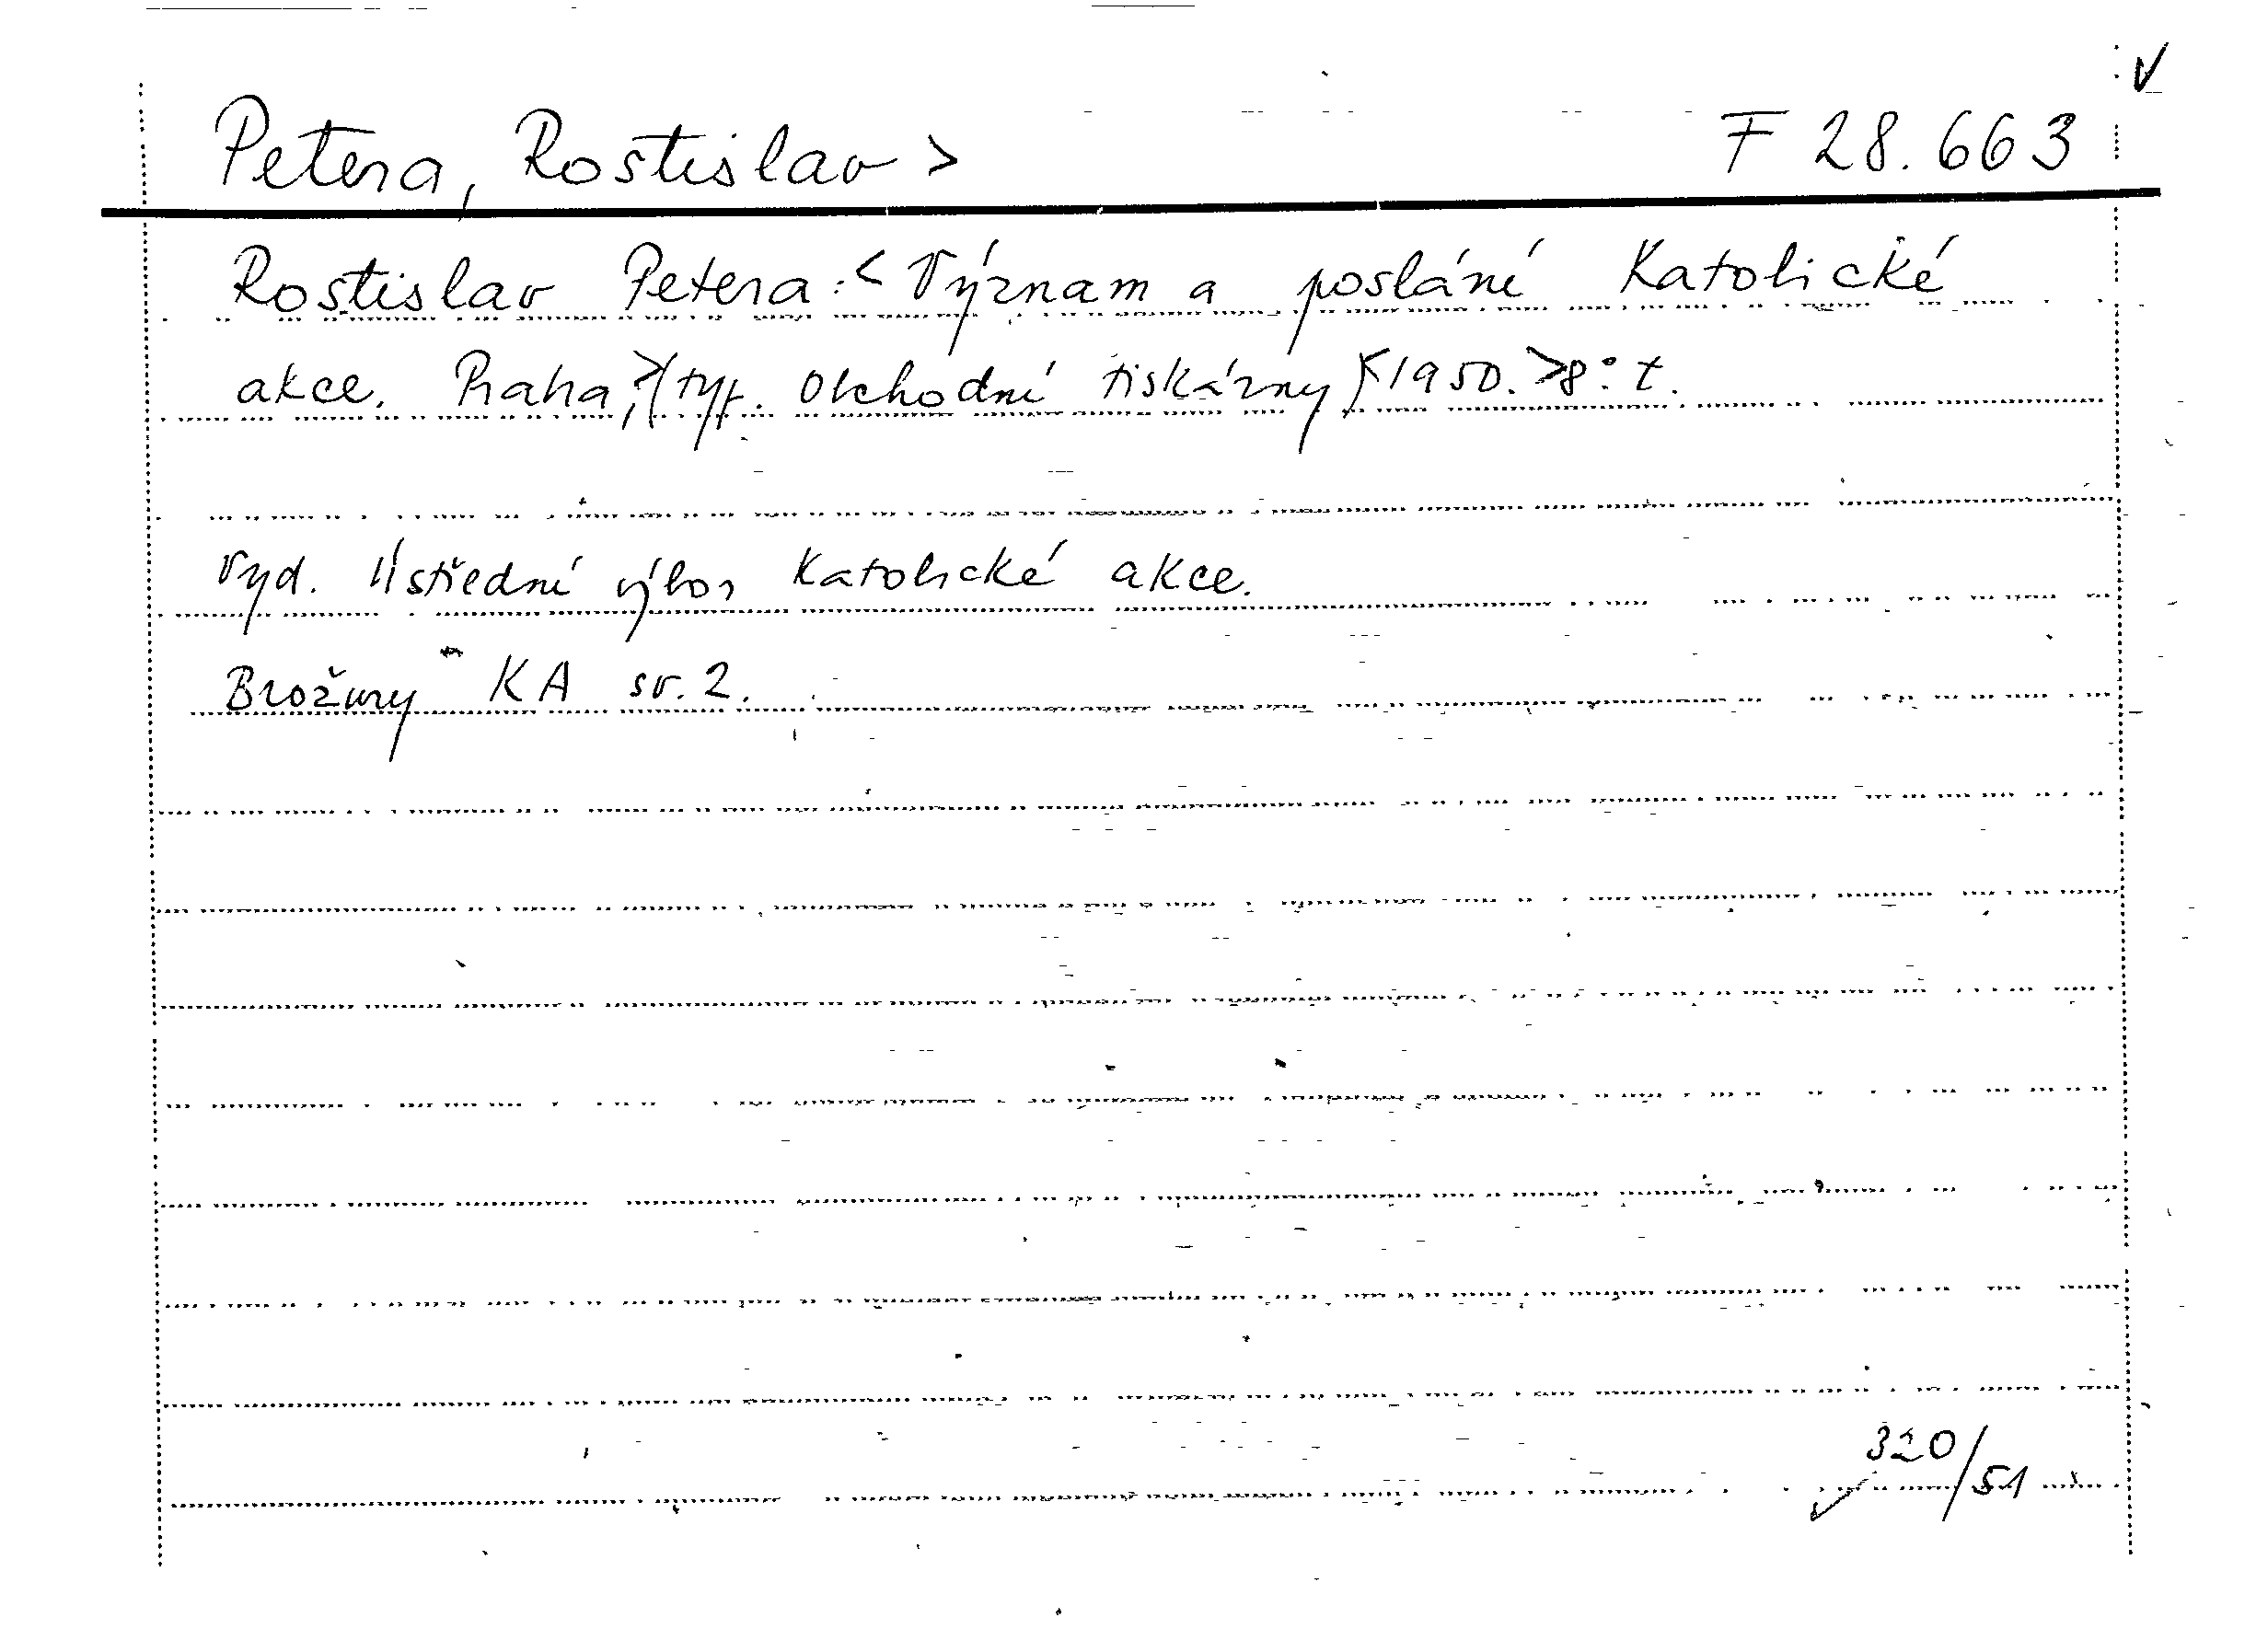 Petera, Rostislav > F 28.663
Rostislav Petera: < Význam a poslání Katolické
akce. Praha, >(typ. Obchodní tiskárny)< 1950. > 8°. t.
Vyd. Ústřední výbor Katolické akce.
Brožury KA sv. 2.
320/51